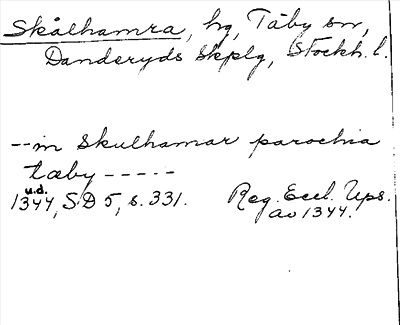 Skålhamra, hg, Täby sn,
Danderyds skplg, Stockh. l.
--in Skulhamar parochia
tæby -----
u.d.
1344, SD 5, s. 331. Reg. Eccl. Ups.
av 1344.